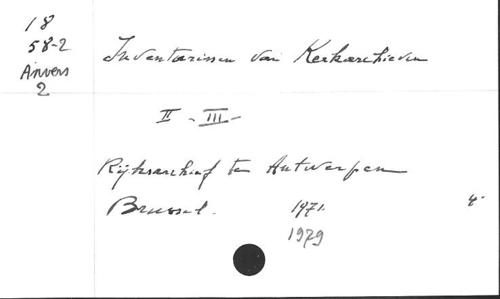 18
58-2
Anvers
2
Inventarissen van Kerkarchieven
II - III -
Rijksarchief te Antwerpen
Brussel. 1971.
1979